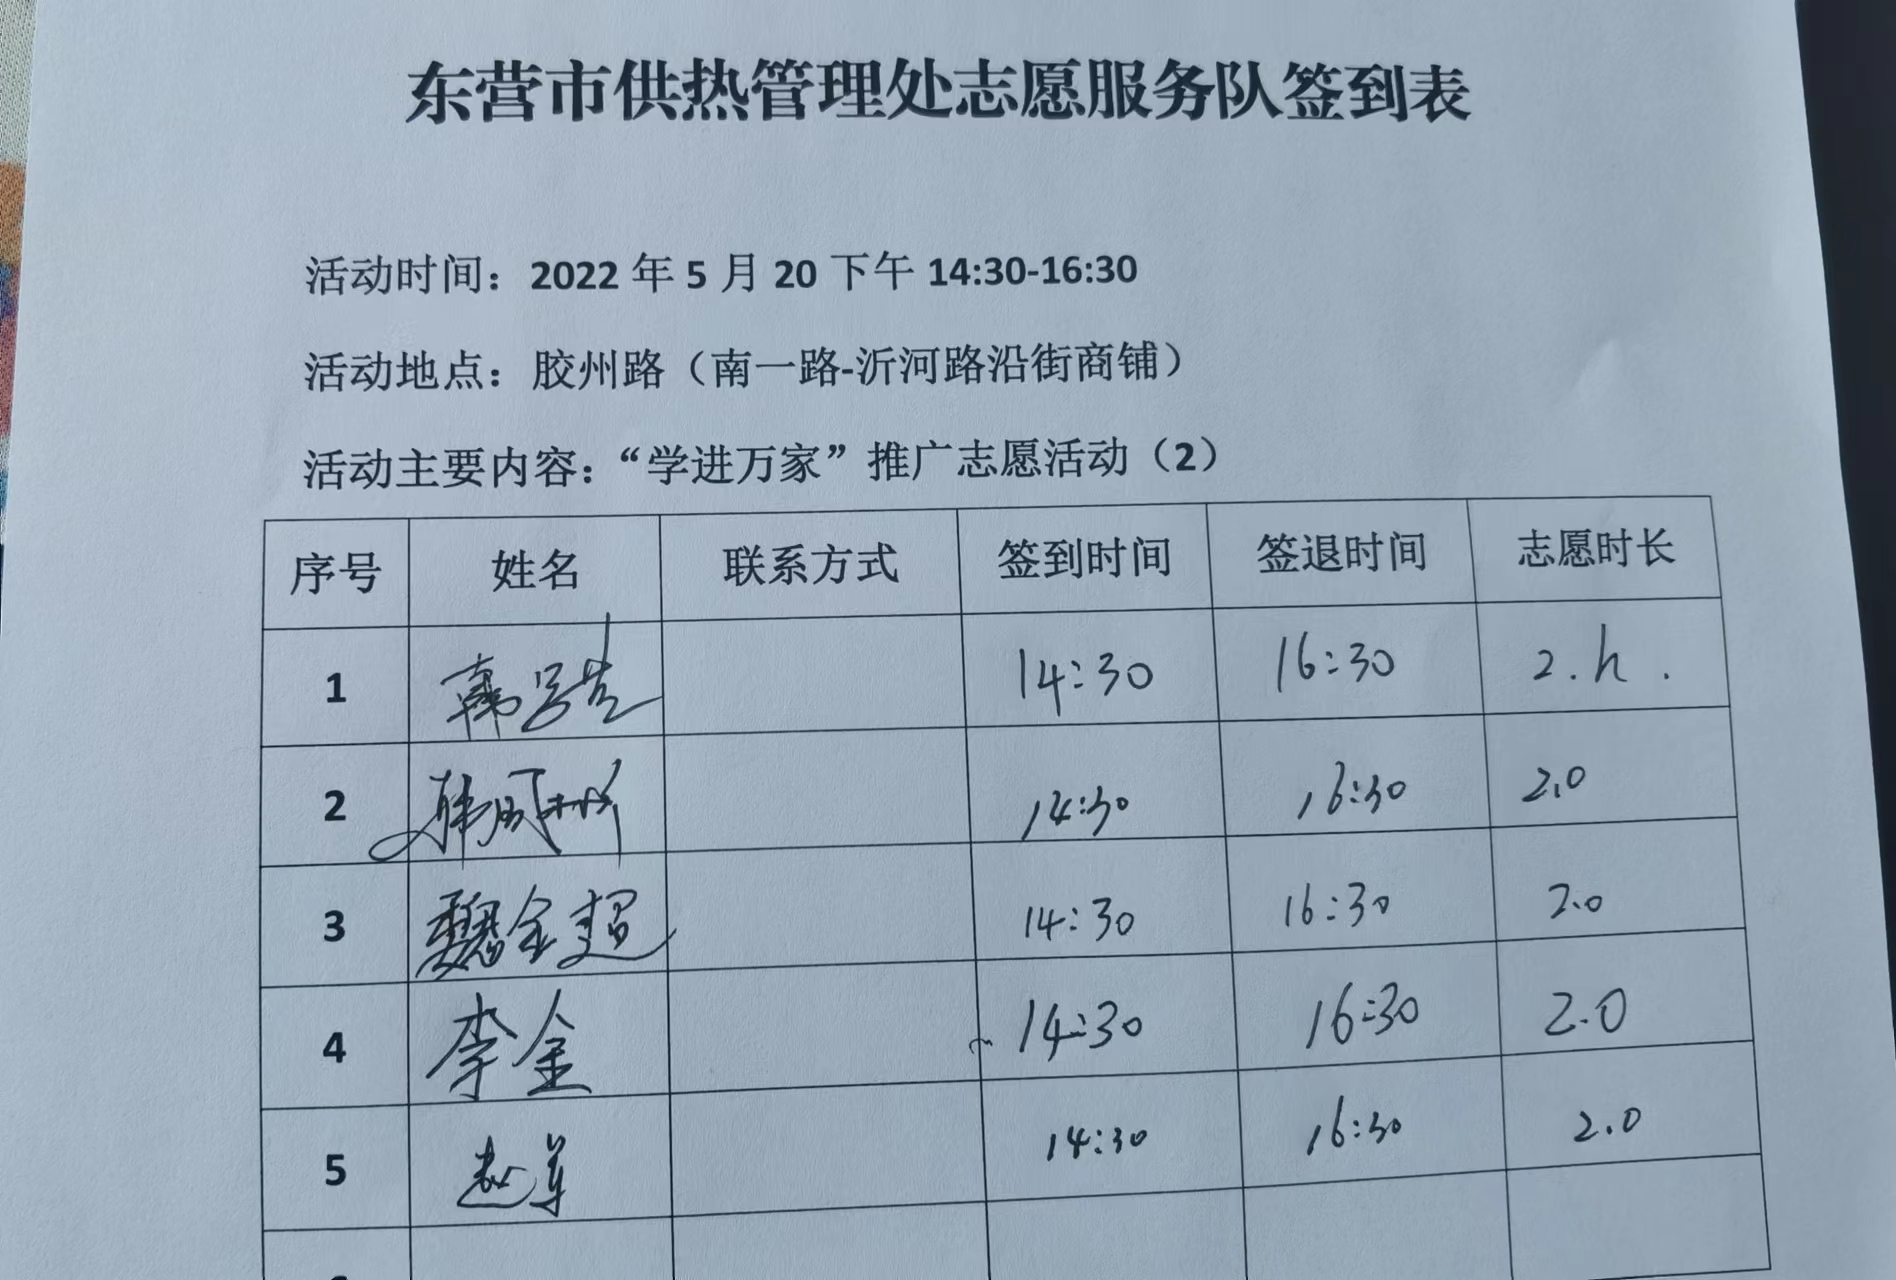 东营市供热管理处志愿服务队签到表
活动时间：2022 年 5 月 20 下午 14:30-16:30
活动地点：胶州路（南一路-沂河路沿街商铺）
活动主要内容：“学进万家”推广志愿活动（2）
序号 姓名 联系方式 签到时间 签退时间 志愿时长
1 14:30 16:30 2.h.
2 14:30 16:30 2.0
3 魏金超 14:30 16:30 2.0
4 李金 14:30 16:30 2.0
5 14:30 16:30 2.0